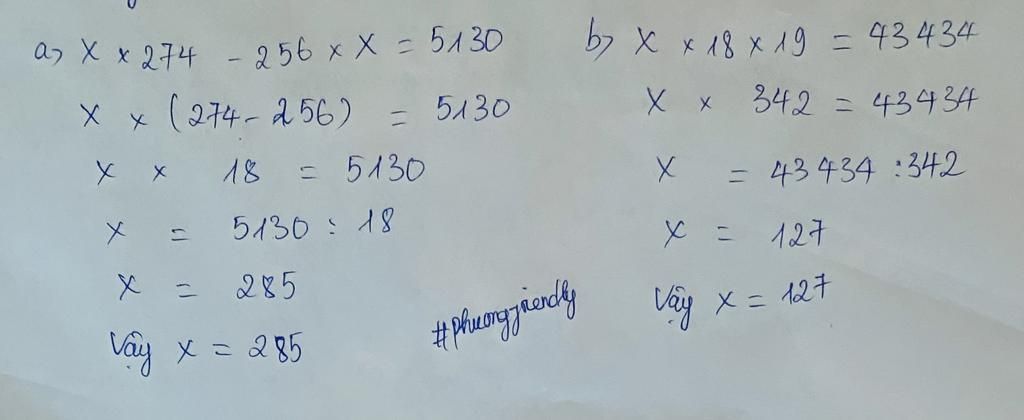 a) X × 274 - 256 × X = 5130
X × (274 - 256) = 5130
X × 18 = 5130
X = 5130 : 18
X = 285
Vậy x = 285
#phuongfriendly
b) X × 18 × 19 = 43 434
X × 342 = 43434
X = 43 434 : 342
X = 127
Vậy x = 127